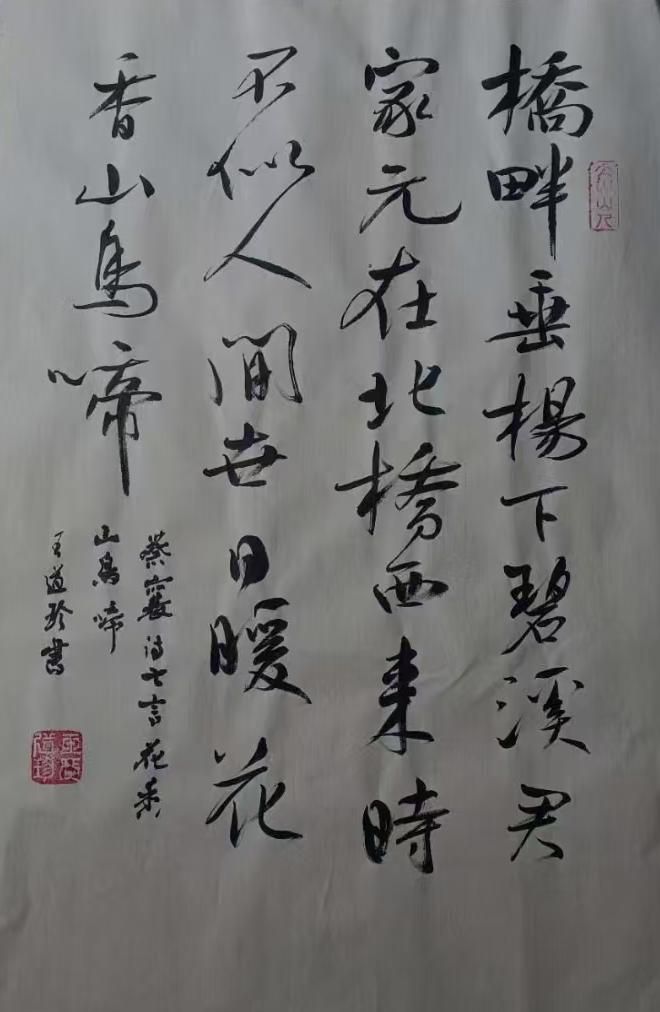 橋畔垂楊下碧溪君
家元在北橋西來時
不似人間世日暖花
香山鳥啼
蔡襄詩七言花香
山鳥啼
王道珍書
王氏道珍